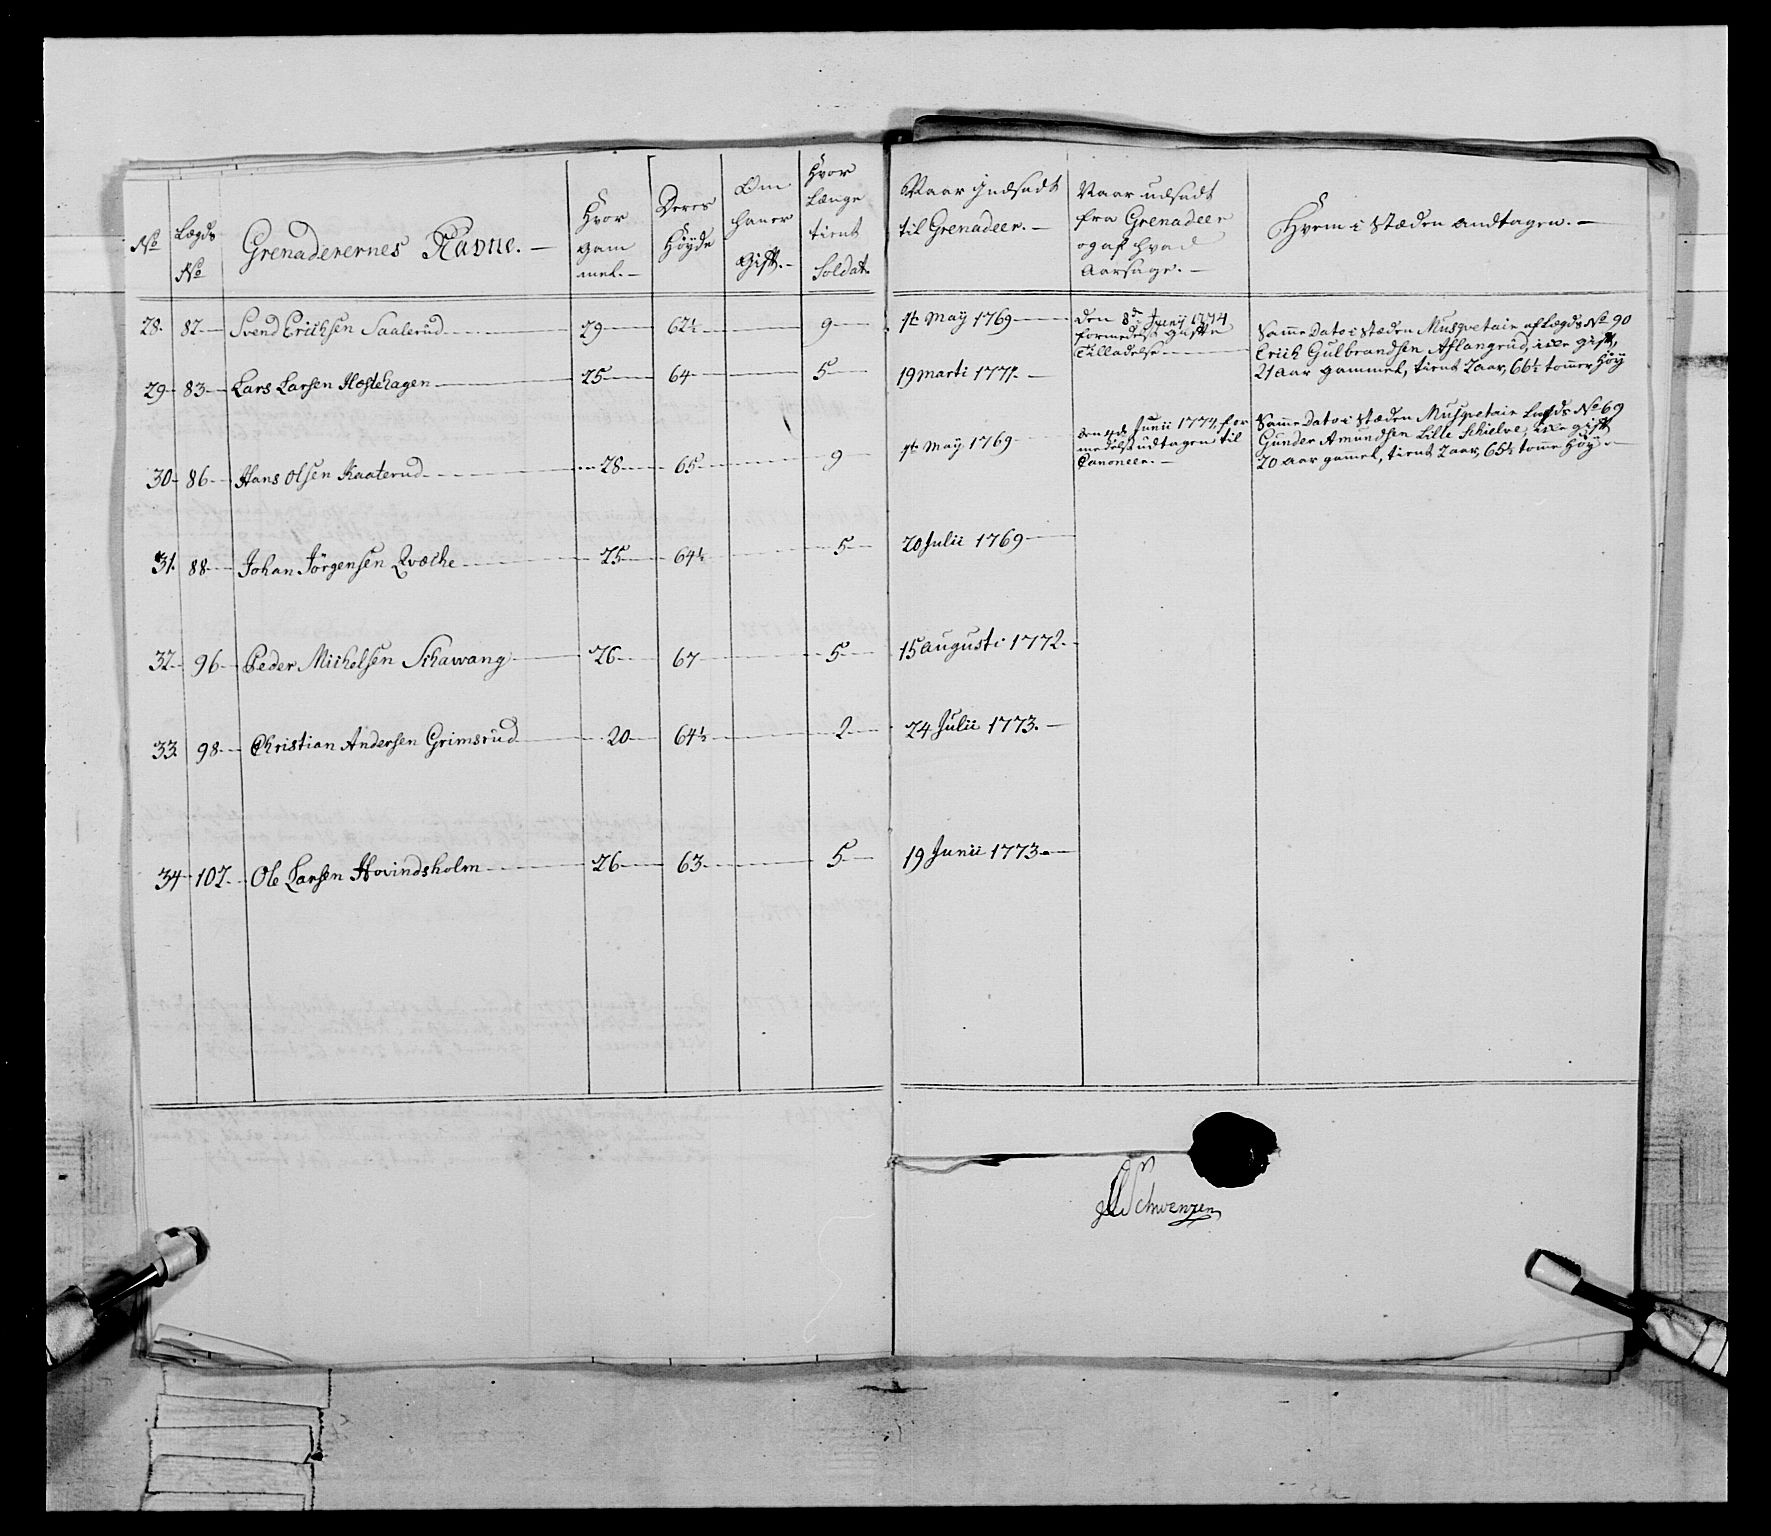 No
Lægds No
Grenaderernes Navne. —
Hvor gam mel. —
Deres Høyde
Om han er Gift. —
Hvor Længe tient Soldat.
Naar Indsadt til Grenadeer. —
Naar udsadt fra Grenadeer og af hvad Aarsage. —
Hvem i Stæden andtagen. —
28. 82 Svend Erichsen Saalerud 29 62½ 9 1te May 1769
Den 8de Junij 1774
formedelst Gifte
Tilladelse
Samme Dato i Stæden Musqvetair af Lægds No 90
Erich Gulbrandsen Aslangrud, icke gift,
21 Aar gammel, tient 2 aar, 66½ tommer Høy
29 83 Lars Larsen Hostehagen 25 64 5 19 Marti 1771. —
30 86 Hans Olsen Kaaterud 28 65 9 1te May 1769
den 4de Junii 1774, for
medelst udtagen til
Canoneer. —
Samme Dato i Stæden Musqvetair Lægds No 69
Gunder Amundsen Lille Schielve, icke gift
20 Aar gammel, tient 2 aar, 65½ tomme Høy. —
31. 88 Johan Jörgensen Qvæche 25 64½ 5 20 Julii 1769
32 96 Peder Michelsen Schavang 26 67 5 15 Augusti 1772. —
33. 98 Christian Andersen Grimsrud 20 64½ 2 24 Julii 1773. —
34 102 Ole Larsen Hovindsholm 26 63 5 19 Junii 1773. —
Schwenzen